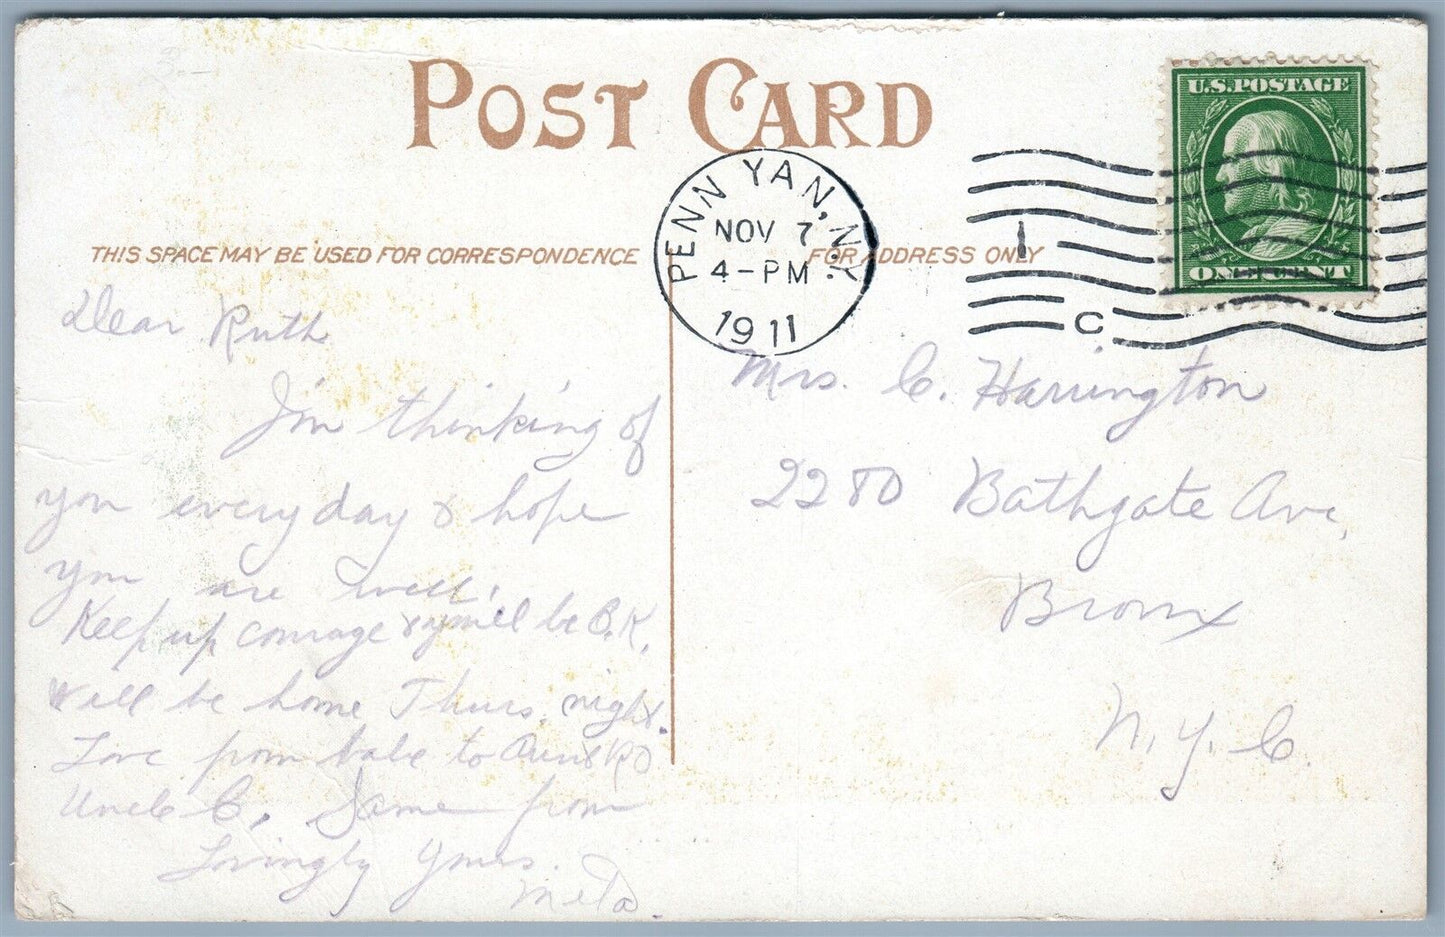 POST CARD
U.S. POSTAGE
ONE CENT
PENN YAN, N.Y.
NOV 7
4-PM
1911
1
C
THIS SPACE MAY BE USED FOR CORRESPONDENCE
FOR ADDRESS ONLY
Dear Ruth
I'm thinking of
you every day & hope
you are well.
Keep up courage & you'll be O.K.
Will be home Thurs. night.
Love from babe to Aunt R &
Uncle C. Same from
Lovingly Yours.
Meta.
Mrs. C. Harrington
2280 Bathgate Ave,
Bronx
N. Y. C.